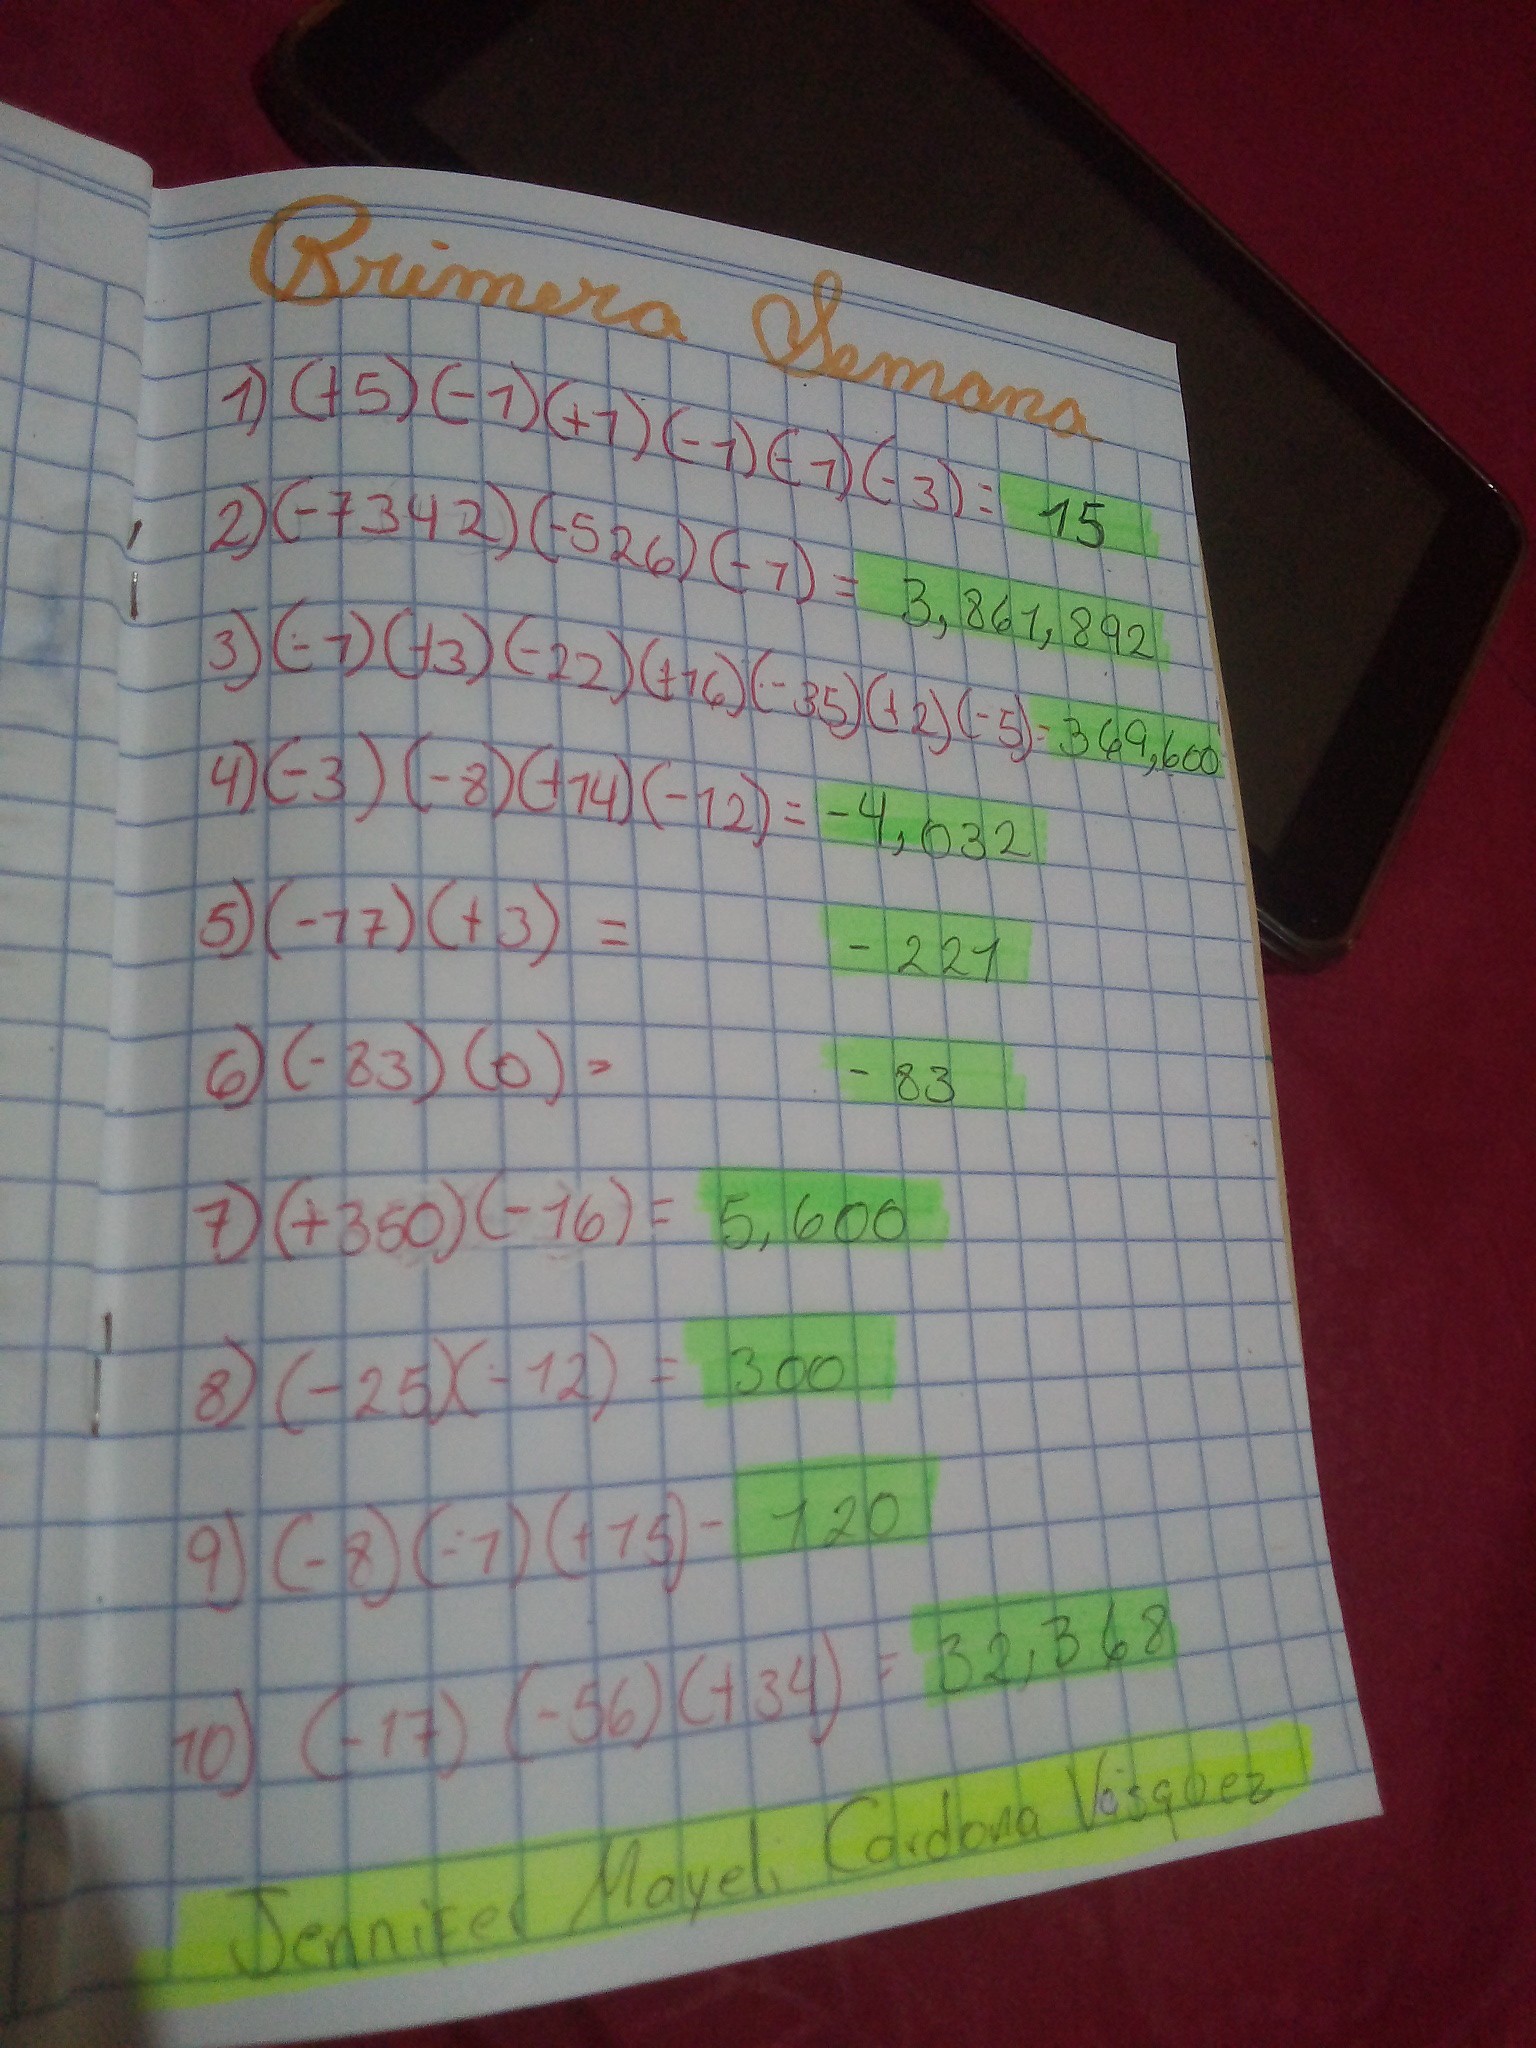 Primera Semana
1) (+5)(-1)(+1)(-1)(-1)(-3)= 15
2) (-7342)(-526)(-1)= 3,861,892
3) (-1)(+3)(-22)(+16)(-35)(+2)(-5)= 369,600
4) (-3)(-8)(+14)(-12)= -4,032
5) (-17)(+3) = - 221
6) (-83)(0) = - 83
7) (+350)(-16)= 5,600
8) (-25)(-12) = 300
9) (-8)(-1)(+15)- 120
10) (-17) (-56)(+34) = 32,368
Jennifer Mayeli Cardona Vásquez